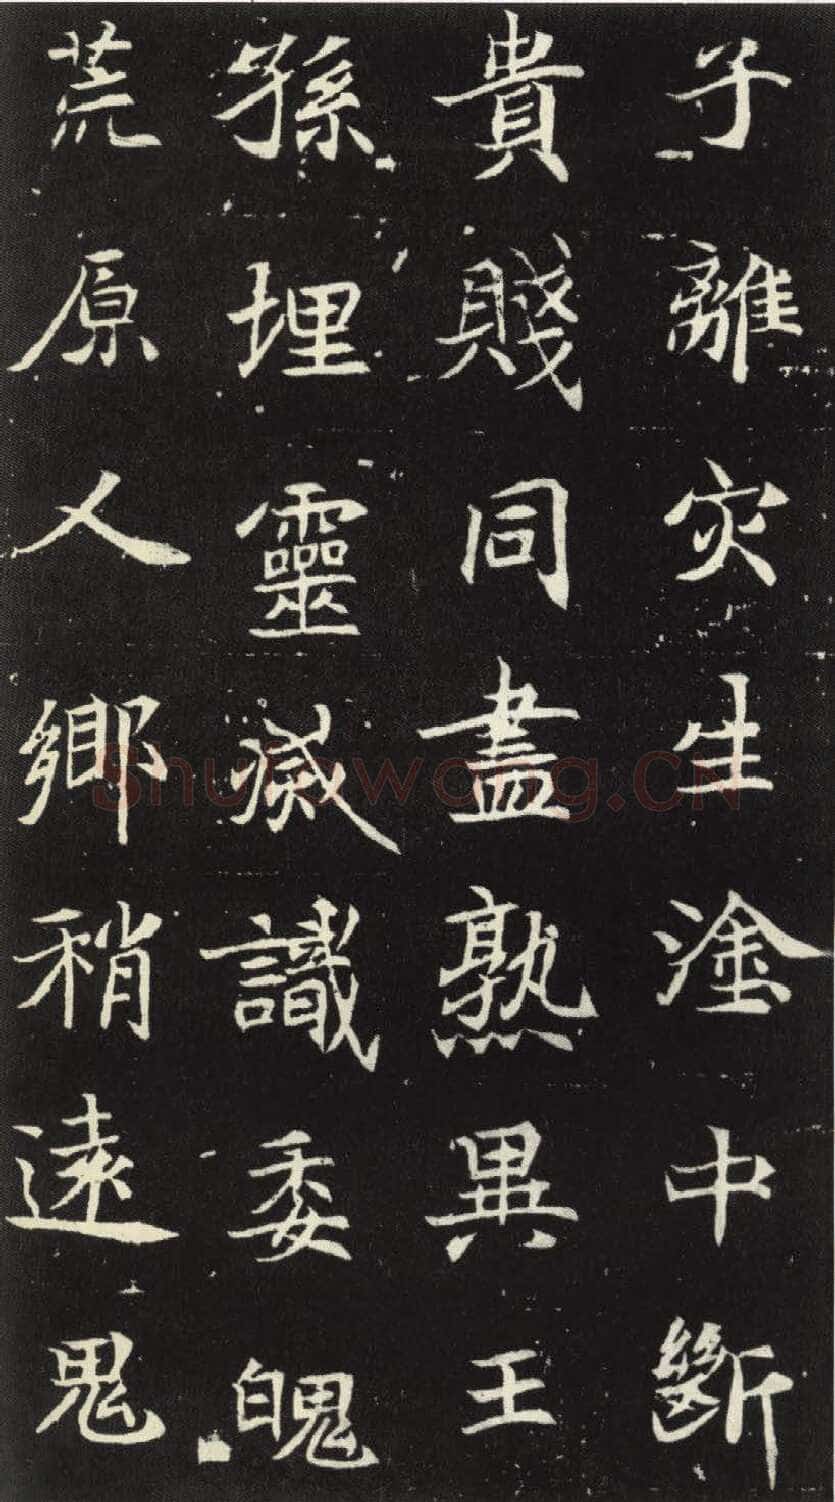 子離灾生塗中斷
貴賤同盡熟異王
孫埋靈滅識委魄
荒原人鄉稍遠鬼
Shufawang.CN